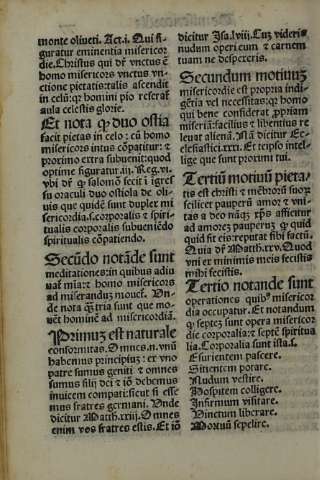 monte oliueti. Act.i. Qui fi-
guratur eminentia misericor
die. Christus qui dr̄ vnctus ē
homo misericors vnctus vn-
ctione pietatis: talis ascendit
in celū: qꝛ homini pio reserat̄
aula celestis glorie.
Et nota qꝫ duo ostia
facit pietas in celo: cū homo
misericors intus cōpatitur: ⁊
proximo extra subuenit: quod
optime figuratur .iij. Reg. vi.
vbi dr̄ qꝫ salomō fecit ī īgres
su oraculi duo ostiola de oli-
uis que quidē sunt duplex mi
sericordia. s. corporalis ⁊ spiri-
tualis corporalis subueniēdo
spiritualis cōpatiendo.
Secūdo notāde sunt
meditationes: in quibus adiu
uat̄ mīa: ⁊ homo misericors
ad miserandum mouet̄. Vn-
de nota qꝫ tria sunt que mo-
uēt hominē ad misericordiā.
Primuꝫ est naturale
conformitas. Omnes .n. vnū
habemus principiuꝫ: ex vno
patre sumus geniti ⁊ omnes
sumus filij dei ⁊ iō debemus
inuicem compati: sicut si esse
mus fratres germani. Unde
dicitur Matth. xxiij. Omnes
enim vos fratres estis. Et iō
dicitur Isa. lviij. Cuꝫ videris
nudum operi eum ⁊ carnem
tuam ne despexeris.
Secundum motiuuꝫ
misericordie est propria indi-
gētia vel necessitas: qꝛ homo
qui bene considerat ꝓpriam
miseriā: facilius ⁊ libentius re
leuat alienā. Nā dicitur Ec-
clesiastici .xxxi. Et teipso intel-
lige que sunt proximi tui.
Tertiū motiuū pieta-
tis est christi ⁊ mēbroruꝫ suoꝝ
scilicet pauperū amor ⁊ vni-
tas a deo nāqꝫ xp̄s afficitur
ad amorez pauperuꝫ qꝫ quid
quid fit eis: reputat sibi factū.
Quia dr̄ Matth. xxv. Quod
vni ex minimis meis fecistis
mihi fecistis.
Tertio notande sunt
operationes quibꝰ misericor
dia occupatur. Et notandum
qꝫ septeꝫ sunt opera misericor
die corporalia: ⁊ septē spiritua
lia. Corporalia sunt ista. s.
Esurientem pascere.
Sitientem potare.
Nudum vestire.
Hospitem colligere.
Infirmum visitare.
Vinctum liberare.
Mortuū sepelire.